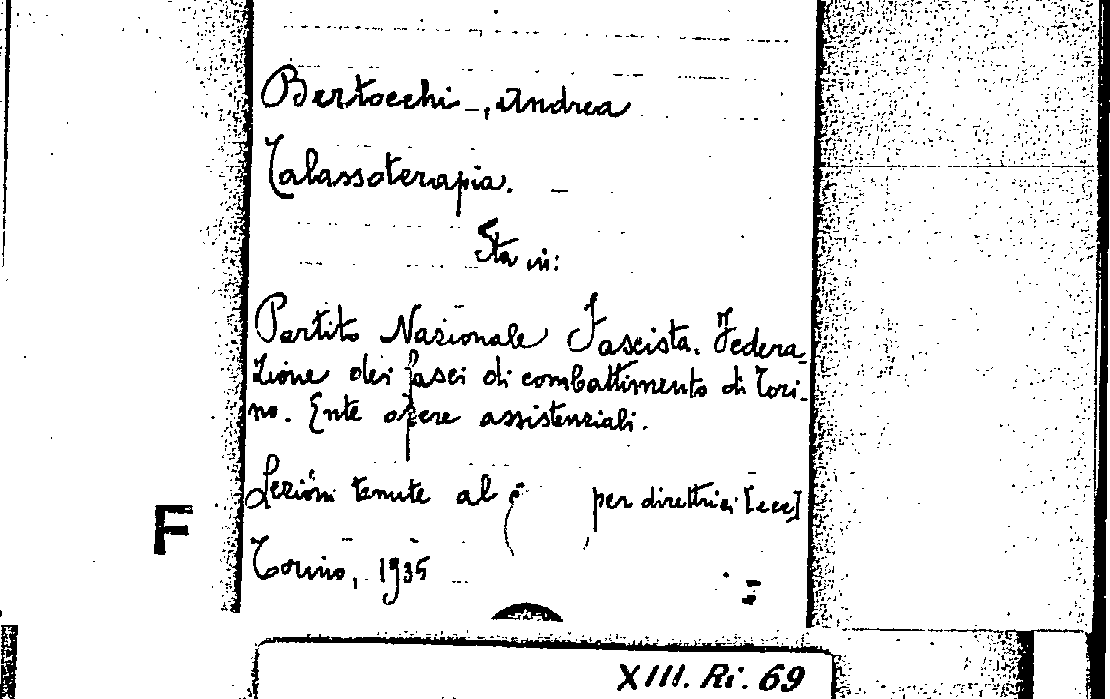 Bertocchi, Andrea
Talassoterapia.
Sta in:
Partito Nazionale Fascista. Federa-
zione dei fasci di combattimento di Tori-
no. Ente opere assistenziali.
Lezioni tenute al per direttrici [ecc]
Torino, 1935
F
XIII. Ri. 69